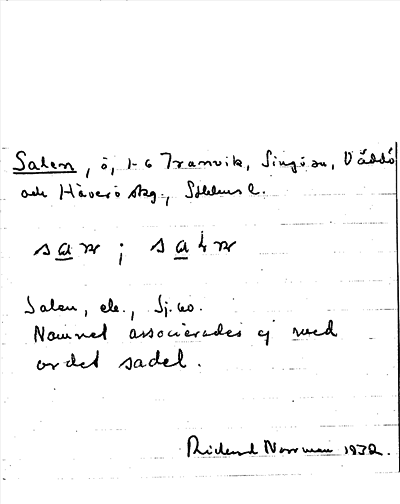 Salen, ö, 1-6 Tranvik, Singö sn, Väddö
och Häverö skg., Sthlms l.
Salen, ek., Sj. 60.
Namnet associerades ej med
ordet sadel.
Rickard Norrman 1932.